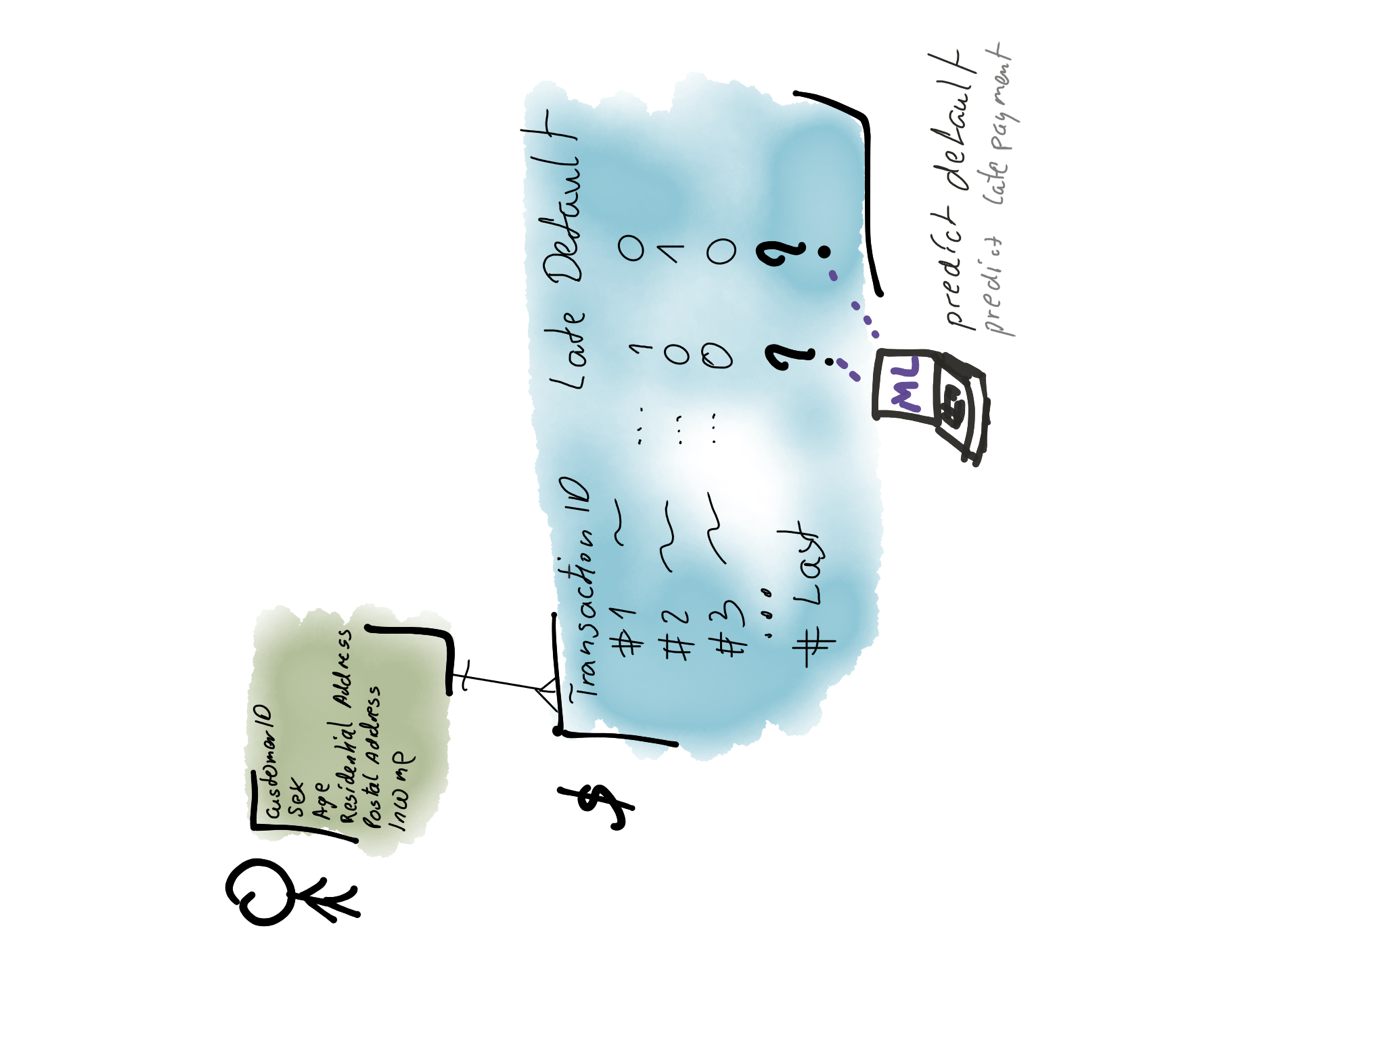 CustomerID
Sex
Age
Residential Address
Postal Address
Income
$
Transaction ID Late Default
#1 ~ ... 1 0
#2 ~ ... 0 1
#3 ~ ... 0 0
...
# Last ? ?
ML
predict default
predict late payment